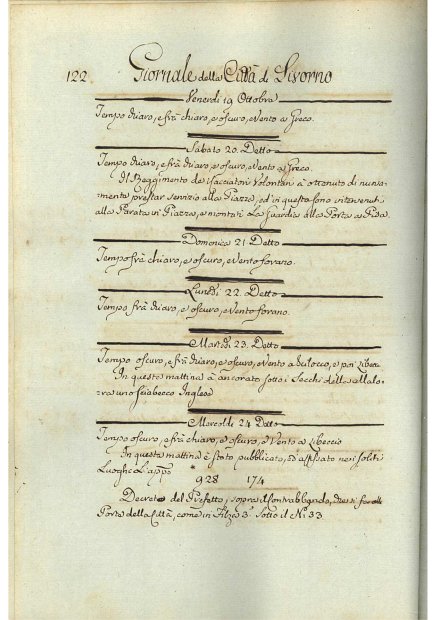 122 Giornale della Città di Livorno
Venerdì 19 Ottobre
Tempo chiaro, e frà chiaro, e oscuro, e Vento a Greco.
Sabato 20. Detto
Tempo chiaro, e frà chiaro, e oscuro, e Vento a Greco.
Il Reggimento de Cacciatori Volontari à ottenuto di nuovo
prestar servizio alla Piazza, ed in questo sono intervenuti
alla Parata in Piazza, e montati La Guardia alla Porta a Pisa.
Domenica 21 Detto
Tempo frà chiaro, e oscuro, e Vento forano.
Lunedì 22. Detto
Tempo frà chiaro, e oscuro, e Vento forano.
Martedì 23. Detto
Tempo oscuro, e frà chiaro, e oscuro, e Vento a Scilocco, e poi Libecc.
In questa mattina à ancorato sotto i Secchi della
uno Sciabecco Inglese
Mercoldì 24 Detto
Tempo oscuro, e frà chiaro, e oscuro, e Vento a Libeccio
In questa mattina è stato pubblicato, ed affissato nei soliti
Luoghi L'appo
928 174
Decreto del Prefetto, sopra il Contrabbando,
Porte della Città, come in Filza 3ª Sotto il Nº 33